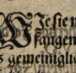 WJe sie v
fangen
s gemeiniglic